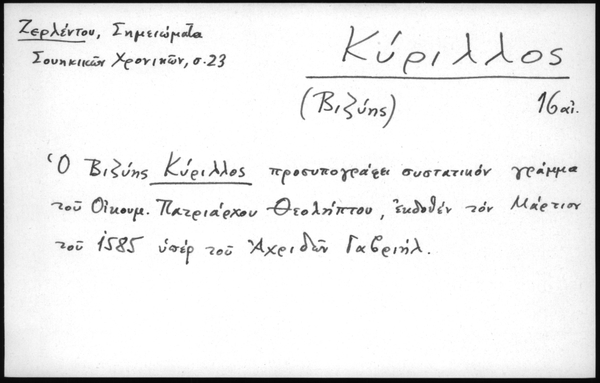 Ζερλέντου, Σημειώματα
Σουηκικῶν Χρονικῶν, σ.23
Κύριλλος
(Βιζύης)
16 αἰ.
Ὁ Βιζύης Κύριλλος προσυπογράφει συστατικόν γράμμα
τοῦ Οἰκουμ. Πατριάρχου Θεολήπτου, ἐκδοθέν τόν Μάρτιον
τοῦ 1585 ὑπέρ τοῦ Ἀχριδῶν Γαβριήλ.